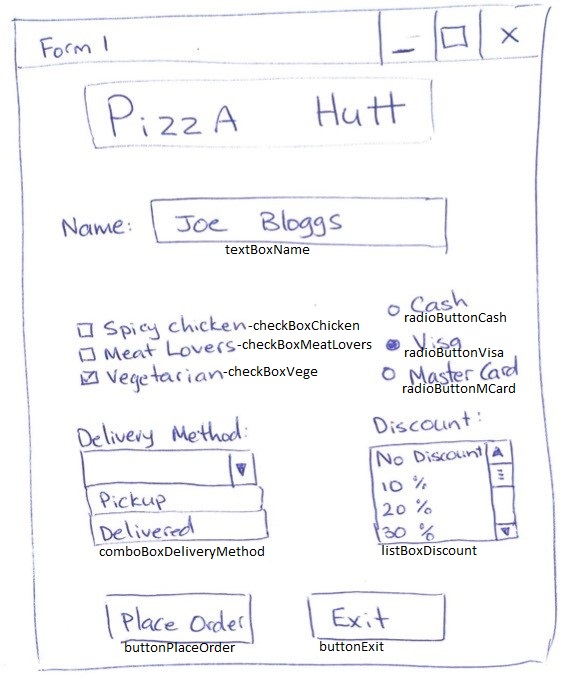 Form 1
PizzA Hutt
Name: Joe Bloggs
textBoxName
Spicy chicken-checkBoxChicken
Meat Lovers-checkBoxMeatLovers
Vegetarian-checkBoxVege
Cash
radioButtonCash
Visa
radioButtonVisa
Master Card
radioButtonMCard
Delivery Method:
Pickup
Delivered
comboBoxDeliveryMethod
Discount:
No Discount
10 %
20 %
30 %
listBoxDiscount
Place Order
buttonPlaceOrder
Exit
buttonExit